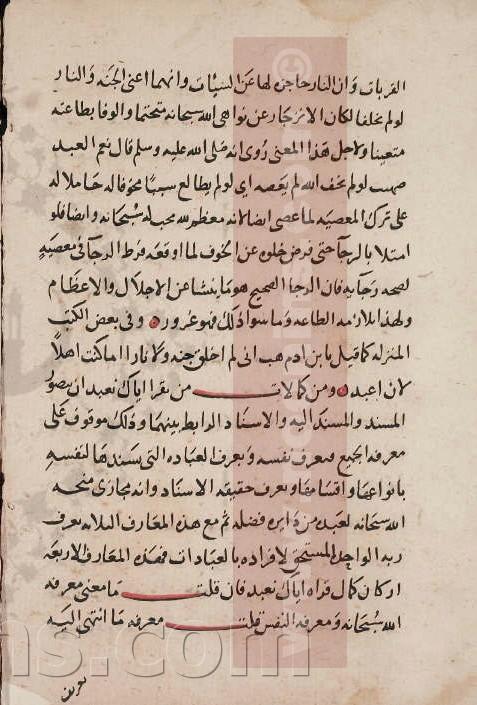 القربات وان النار حاجزة لها عن السيئات وانهما اعنى الجنة والنار
لو لم يخلقا لكان الانزجار عن نواهى الله سبحانه متحتما والوفا بطاعته
متعينا ولاجل هذا المعنى روى انه صلى الله عليه وسلم قال نعم العبد
صهيب لو لم يخف الله لم يعصه اى لو لم يطالع سببا مخوفا له حاملا له
على ترك المعصيه لما عصى ايضا لانه معظم لله محب له سبحانه وايضا فلو
امتلا بالرجا حتى فرض خلوه عن الخوف لما اوقعه فرط الرجا فى معصيه
لصحه رجايه فان الرجا الصحيح هو ما ينشا عن الاجلال والاعظام
ولهذا يلازمه الطاعه وما سوا ذلك فهو غرور ه وفى بعض الكتب
المنزله كما قيل يا بن ادم هب انى لم اخلق جنه ولا نارا اما كنت اهلا
لان اعبد ه ومن كمالات من يقرا اياك نعبد ان يتصور
المسند والمسند اليه والاسناد الرابط بينهما وذلك موقوف على
معرفه الجميع فيعرف نفسه ويعرف العباده التى يسندها لنفسه
بانواعها واقسامها ويعرف حقيقه الاسناد وانه مجازى منحه
الله سبحانه لعبده من دايره فضله ثم مع هذه المعارف الثلاثه يعرف
ربه الواحد المستحق لافراده بالعبادات فهذه المعارف الاربعه
اركان كمال قراه اياك نعبد فان قلت ما معنى معرفه
الله سبحانه ومعرفه النفس قلت معرفه ما انتهى اليه
ns.com